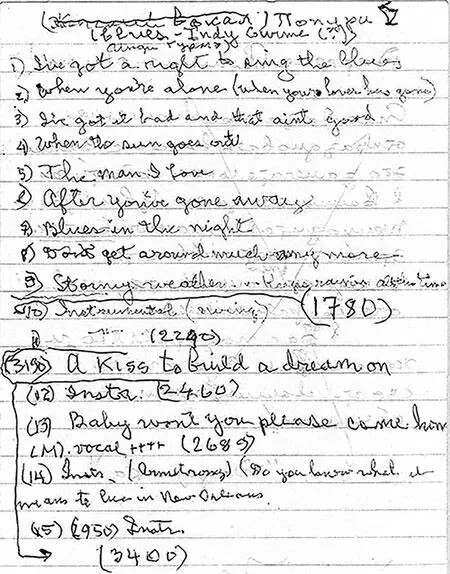 Попури
(blues - Indy Gurme (?))
1) I've got a right to sing the blues
2) When you're alone (when your lover has gone)
3) I've got it bad and that aint good
4) When the sun goes out
5) The man I love
6) After you've gone away
7) Blues in the night
8) Don't get around much any more
9) Stormy weather..
10) Instrumental (swing) (1780)
11 -"- (2290)
(3190) A Kiss to build a dream on
(12) Instr. (2460)
(13) Baby won't you please come home
(M). vocal ++++ (2685)
(14) Instr. (Armstrong) (Do you know what it
means to live in New Orleans.
(15) (2950) Instr.
(3400)